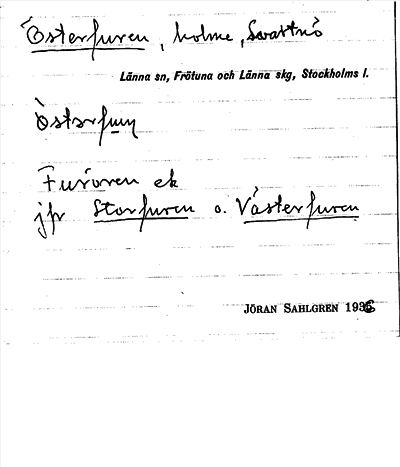 Österfuren, holme, Svartnö
Länna sn, Frötuna och Länna skg, Stockholms l.
Furoren ek
jfr Storfuren o. Västerfuren
JÖRAN SAHLGREN 1936